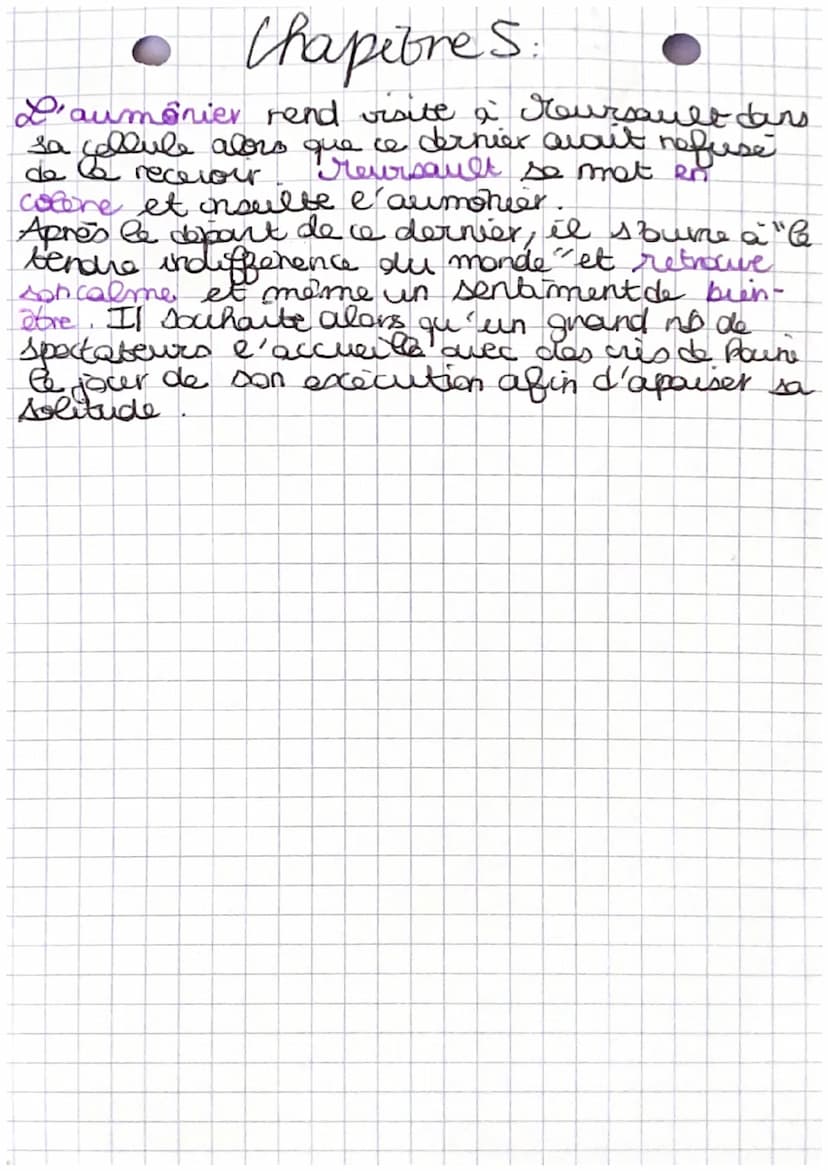 Chapitre 5:
L'aumônier rend visite à Meursault dans
sa cellule alors que ce dernier avait refusé
de le recevoir. Meursault se met en
colère et insulte l'aumônier.
Après le départ de ce dernier, il s'ouvre à "la
tendre indifférence du monde" et retrouve
son calme et même un sentiment de bien-
être. Il souhaite alors qu'un grand nb de
spectateurs l'accueille avec des cris de haine
le jour de son exécution afin d'apaiser sa
solitude.